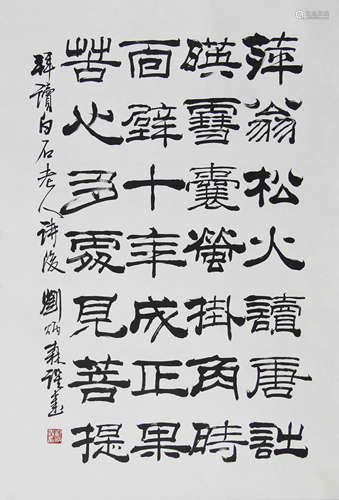 萍翁松火讀唐詩
暎雪囊螢掛角時
面壁十年成正果
苦心多處見菩提
拜讀白石老人詩後 劉炳森謹書